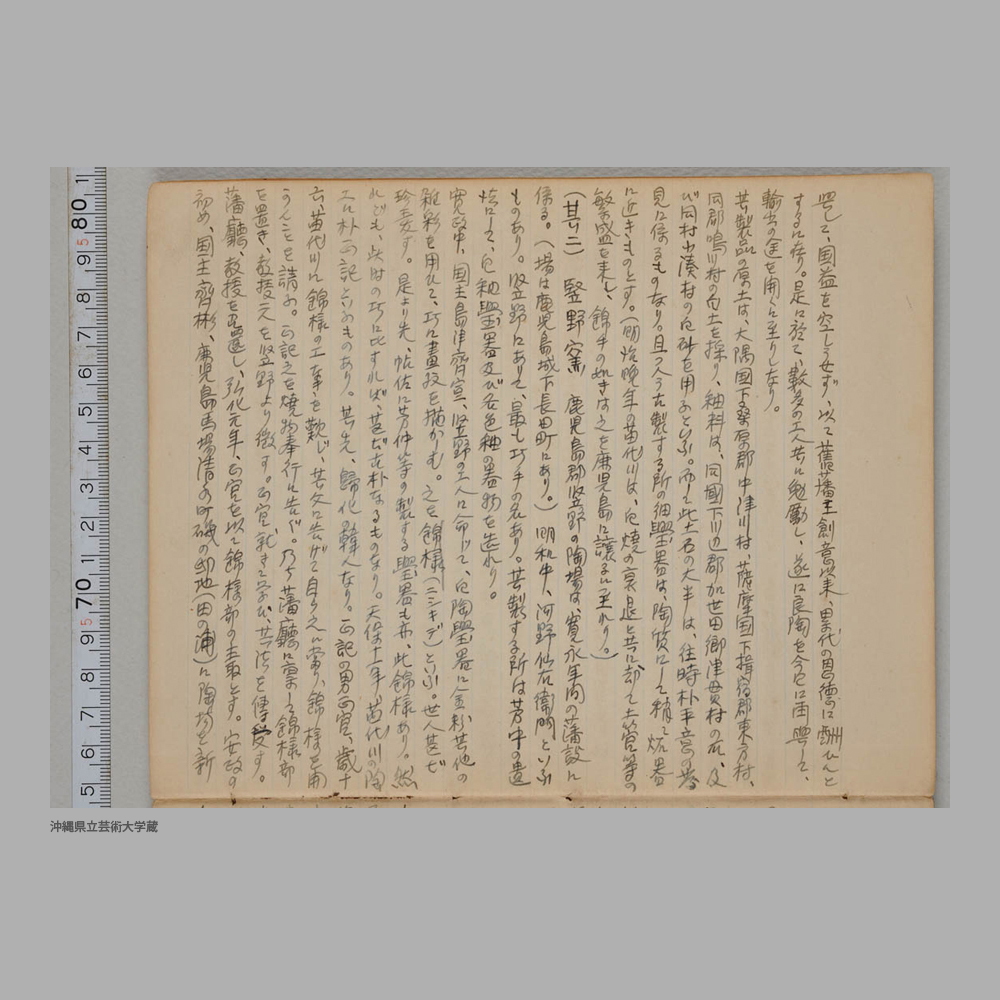 興して、国益を空しうせず、以て舊藩主創意以来、累代の恩徳に酬ひんと
するに在り。是に於て、數多の工人共に勉勵し、遂に良陶を今日に再興して、
輸出の途を開くに至りしなり。
其製品の原土は、大隅国下桑原郡中津川村、薩摩国下揖宿郡東方村、
同郡鳴川村の白土を採り、釉料は、同國下川辺郡加世田郷津貫村の石、及
び同村小湊村の白砂を用ふといふ。而して此土石の大半は、往時朴平意の發
見に係るものなり。且つ今古製する所の細甖器は、陶質にして稍〻炻器
に近きものとす。(明治晩年の苗代川は、白焼の衰退と共に却て土管等の
繁盛を来し、錦手の如きは之を鹿児島に譲るに至れり。)
(其二) 竪野窯 鹿児島郡竪野の陶場は、寛永年間の藩設に
係る。(場は鹿児島城下長田町にあり。) 明和中、河野仙右衛門といふ
ものあり。竪野にありて、最も巧手の名あり。其製する所は芳中の遺
法にして、白釉甖器及び各色釉の器物を造れり。
寛政中、国主島津齊宣、竪野の工人に命じて、白陶甖器に金彩其他の
雑彩を用ひて、巧に畫紋を描かしむ。之を錦様(ニシキデ)といふ。世人甚だ
珍重す。是より先、帖佐に芳仲等の製する甖器も亦、此錦様あり。然
れども、此時の巧に比すれば、甚だ古朴なるものなり。天保十一年、苗代川の陶
工に朴正記といふものあり。其先、歸化韓人なり。正記の男正官、歳十
六、苗代川に錦様の工なきを歎じ、其父に告げて自ら之に當り、錦様を開
かんことを請ふ。正記之を燒物奉行に告ぐ。乃ち藩廳に稟し、錦様部
を置き、教授一人を竪野より徴す。正官、就きて学び、其法を傳受す。
藩廳、教授を召還し、弘化元年、正官を以て錦様部の主取とす。安政の
初め、国主齊彬、鹿児島馬場清の町磯の邸地(田の浦)に陶場を新
沖縄県立芸術大学蔵